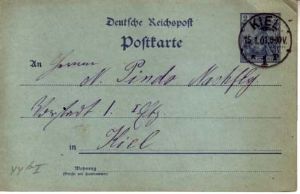 Deutsche Reichspost
Postkarte
KIEL
15.1.01. 8-9V.
An Herrn
N. Pindo Nachflg
Vorstadt 1.
in Kiel
Wohnung
(Straße und Hausnummer)